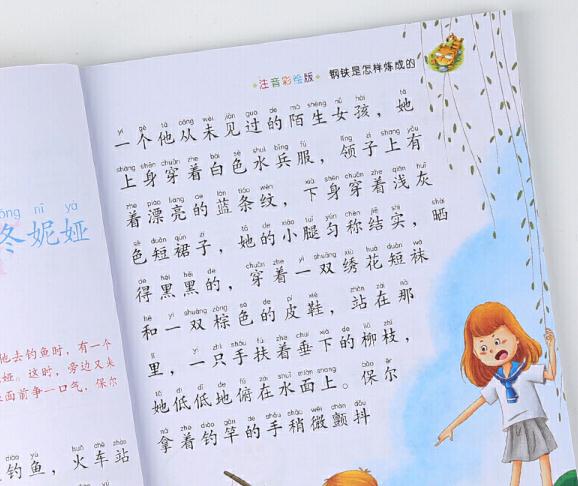 ōng nī yà
冬妮娅
他去钓鱼时，有一个
娅。这时，旁边又来
面前争一口气，保尔
diào yú huǒ chē zhàn
钓鱼，火车站
注音彩绘版 钢铁是怎样炼成的
yí gè tā cóng wèi jiàn guo de mò shēng nǚ hái tā
一个他从未见过的陌生女孩，她
shàng shēn chuān zhe bái sè shuǐ bīng fú lǐng zi shang yǒu
上身穿着白色水兵服，领子上有
zhe piào liang de lán tiáo wén xià shēn chuān zhe qiǎn huī
着漂亮的蓝条纹，下身穿着浅灰
sè duǎn qún zi tā de xiǎo tuǐ yún chèn jiē shi shài
色短裙子，她的小腿匀称结实，晒
de hēi hēi de chuān zhe yì shuāng xiù huā duǎn wà
得黑黑的，穿着一双绣花短袜
hé yì shuāng zōng sè de pí xié zhàn zài nà
和一双棕色的皮鞋，站在那
lǐ yì zhī shǒu fú zhe chuí xià de liǔ zhī
里，一只手扶着垂下的柳枝，
tā dī dī de fǔ zài shuǐ miàn shàng bǎo ěr
她低低地俯在水面上。保尔
ná zhe diào gān de shǒu shāo wēi chàn dǒu
拿着钓竿的手稍微颤抖